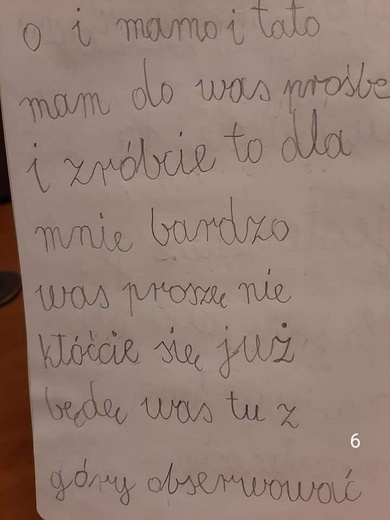 o i mamo i tato
mam do was prośbe
i zróbcie to dla
mnie bardzo
was proszę nie
kłóćcie się już
będę was tu z
6
góry obserwować